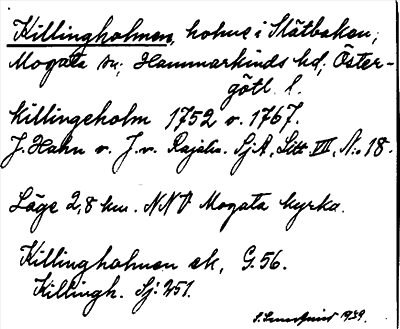 Killingholmen, holme i Slätbaken;
Mogata sn; Hammarkinds hd; Öster-
götl. l.
Killingeholm 1752 o. 1767.
J. Hahn o. J. v. Rajalin. SjA, Litt VII, N:o 18.
Läge 2,8 km. NNV Mogata kyrka.
Killingholmen ek, G. 56.
Killingh. Sj: 251.
1939.